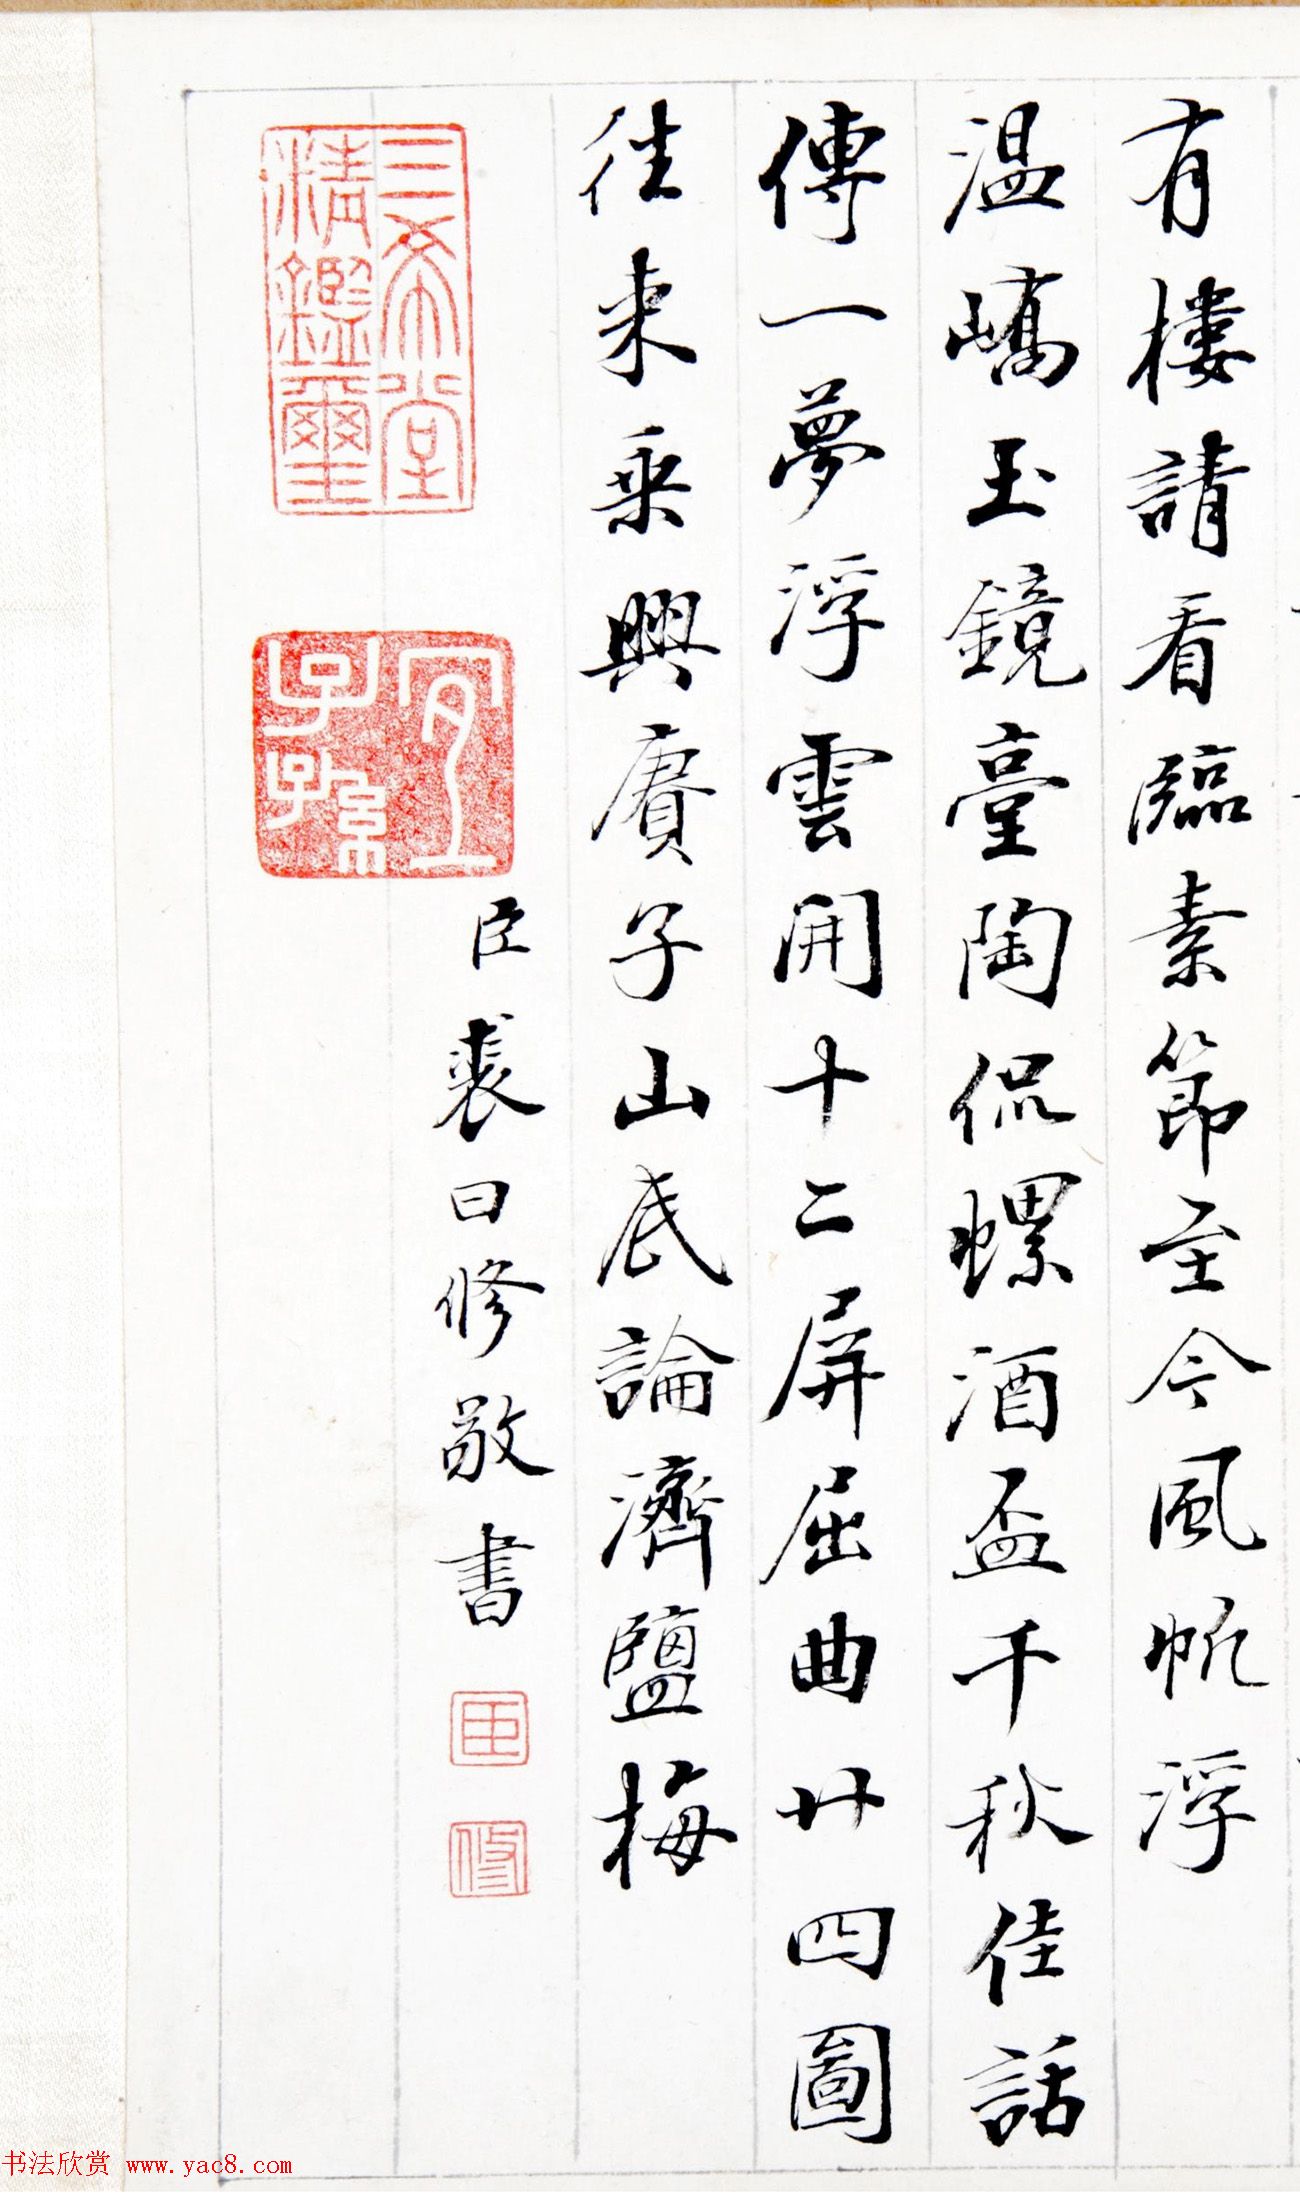 有樓請看臨素節至今風帆浮
温嶠玉鏡臺陶侃螺酒盃千秋佳話
傳一夢浮雲開十二屏屈曲廿四圖
往来乘興賡子山底論濟鹽梅
臣裘曰修敬書
臣
修
三希堂
精鑑璽
宜
子孫
书法欣赏 www.yac8.com